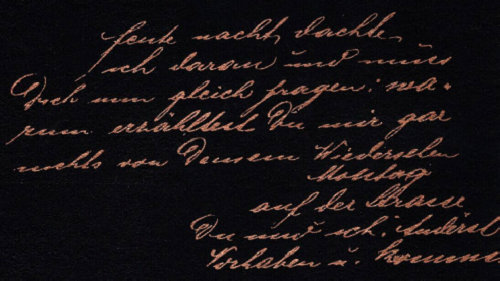 heute nacht, dachte
ich daran und muss
Dich nun gleich fragen: wa-
rum erzähltest Du mir gar
nichts von Deinem Wiedersehen
Montag
auf der Strasse
Du und ich:
Vorhaben u.